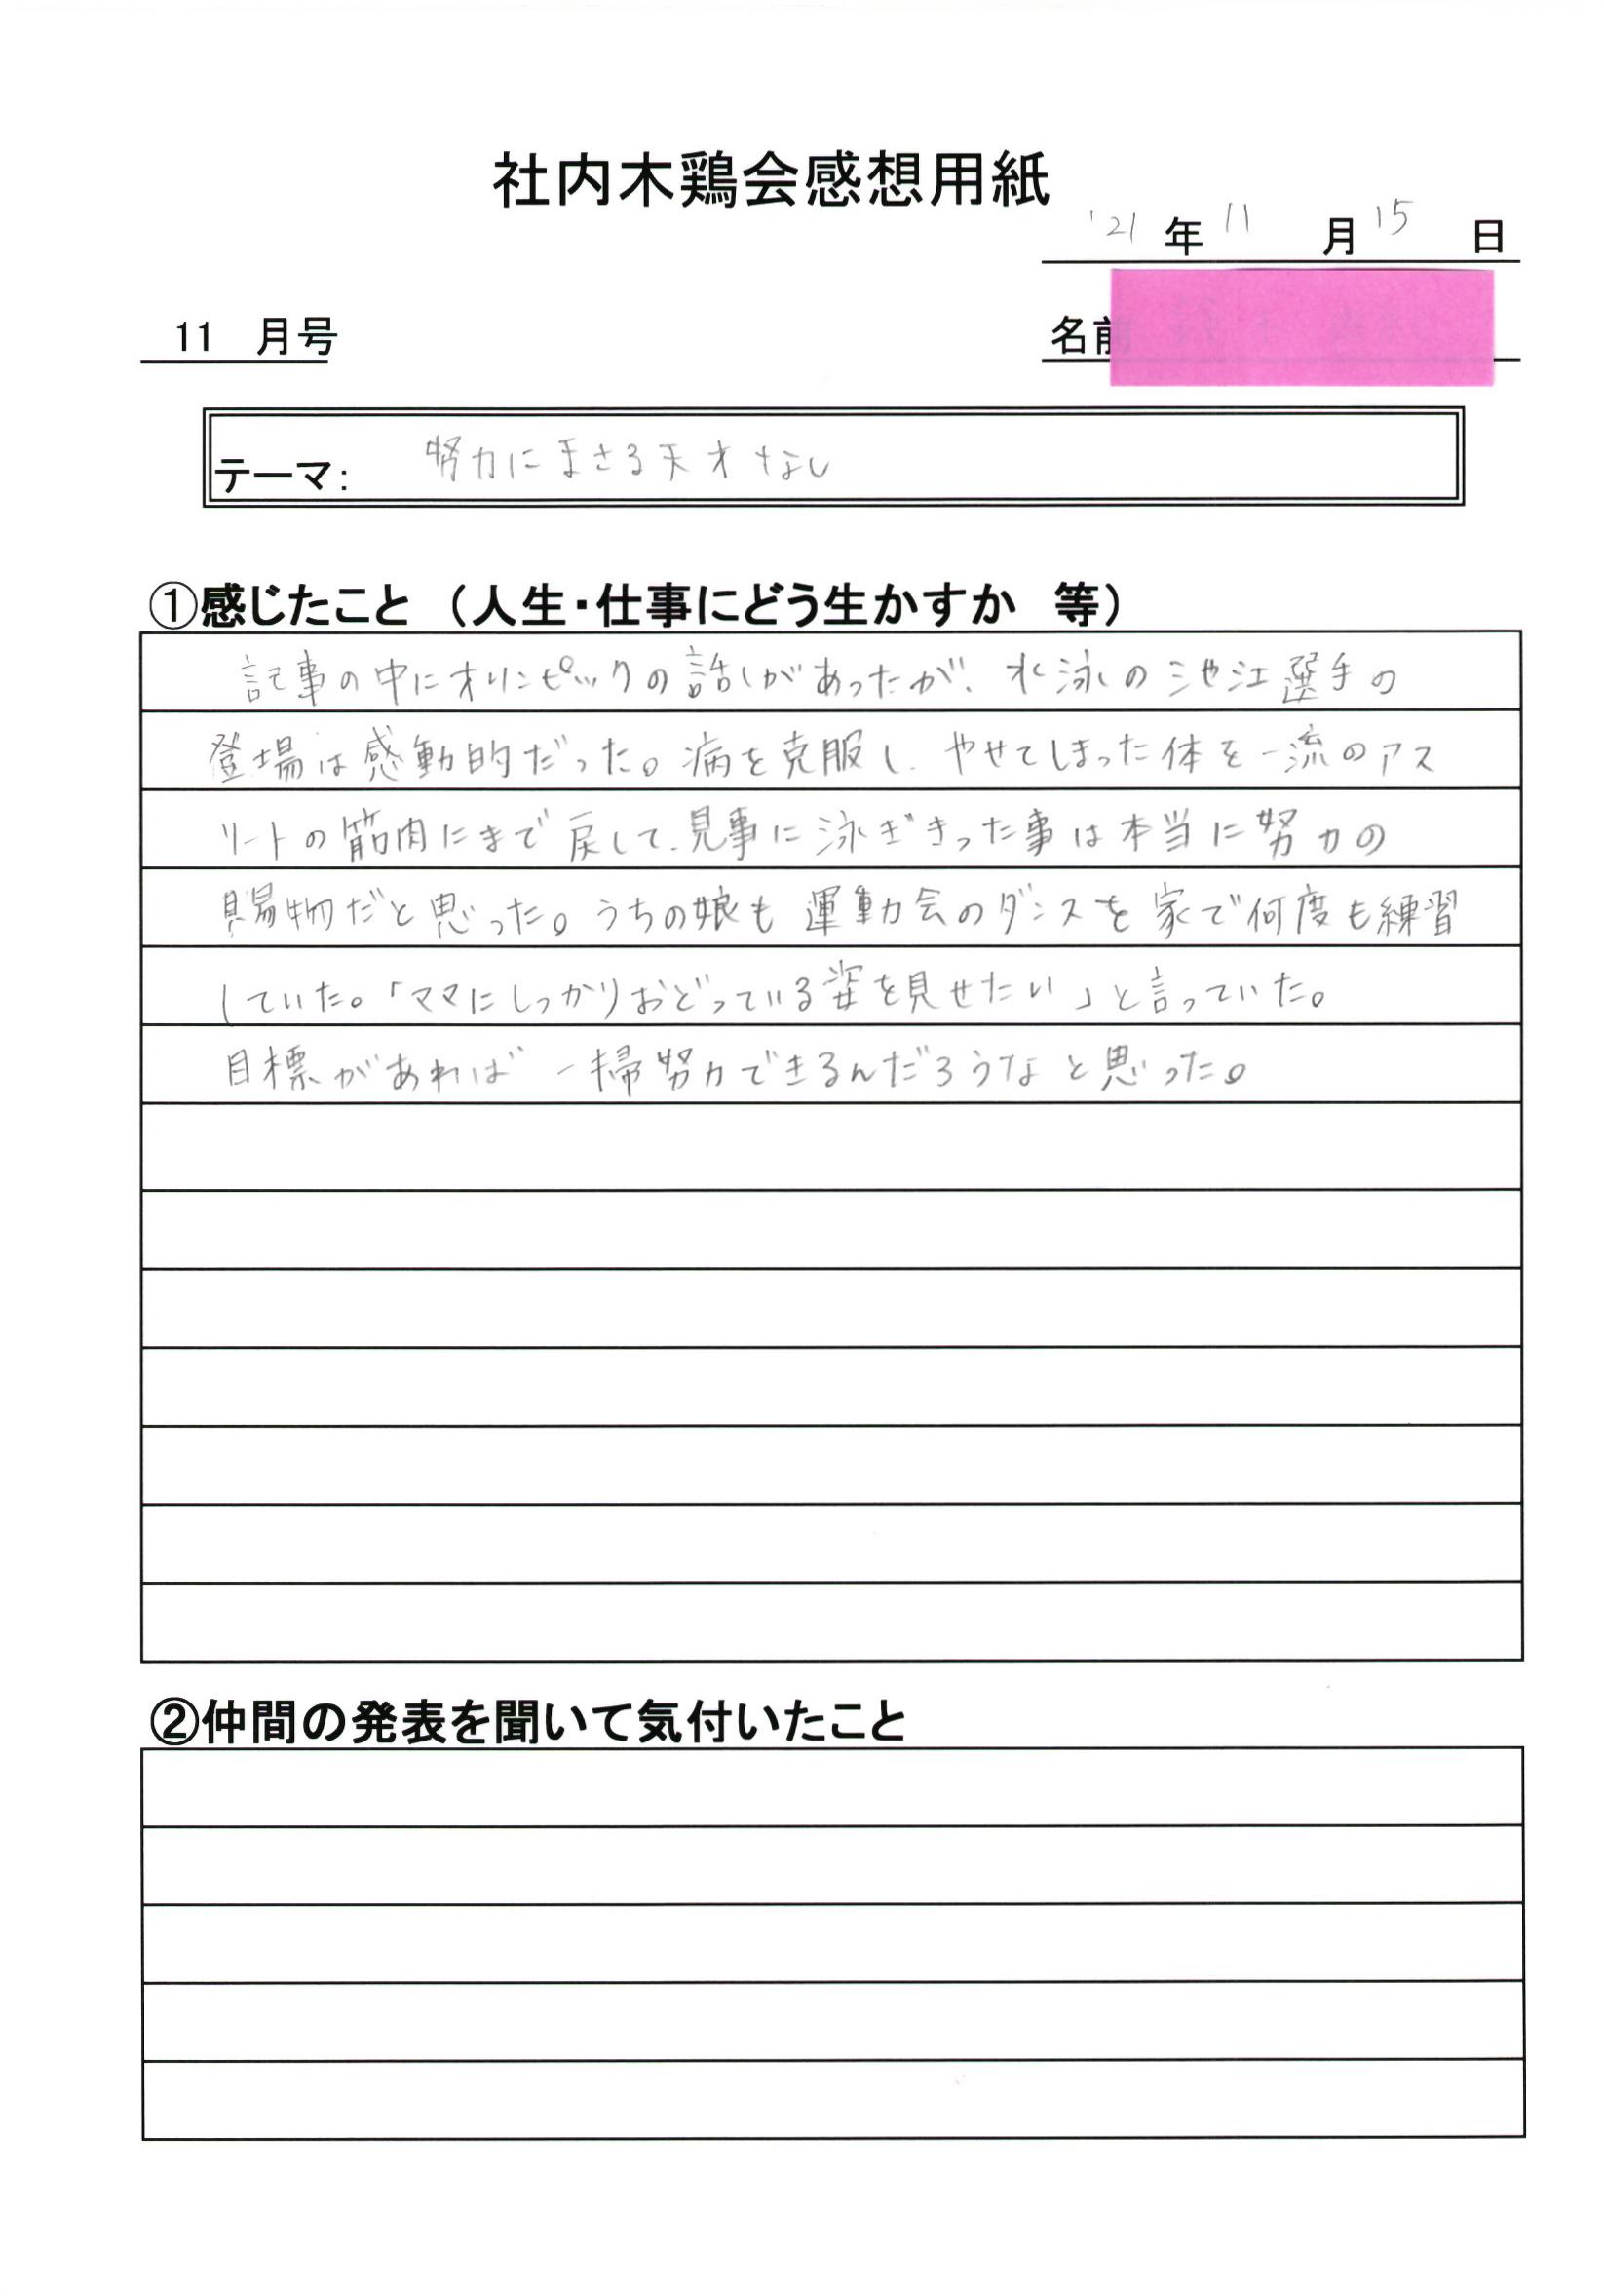 社内木鶏会感想用紙
'21年11月15日
11月号
名前
テーマ: 努力にまさる天才なし
①感じたこと（人生・仕事にどう生かすか 等）
記事の中にオリンピックの話しがあったが、水泳の池江選手の
登場は感動的だった。病を克服し、やせてしまった体を一流のアス
リートの筋肉にまで戻して、見事に泳ぎきった事は本当に努力の
賜物だと思った。うちの娘も運動会のダンスを家で何度も練習
していた。「ママにしっかりおどっている姿を見せたい」と言っていた。
目標があれば一掃努力できるんだろうなと思った。
②仲間の発表を聞いて気付いたこと